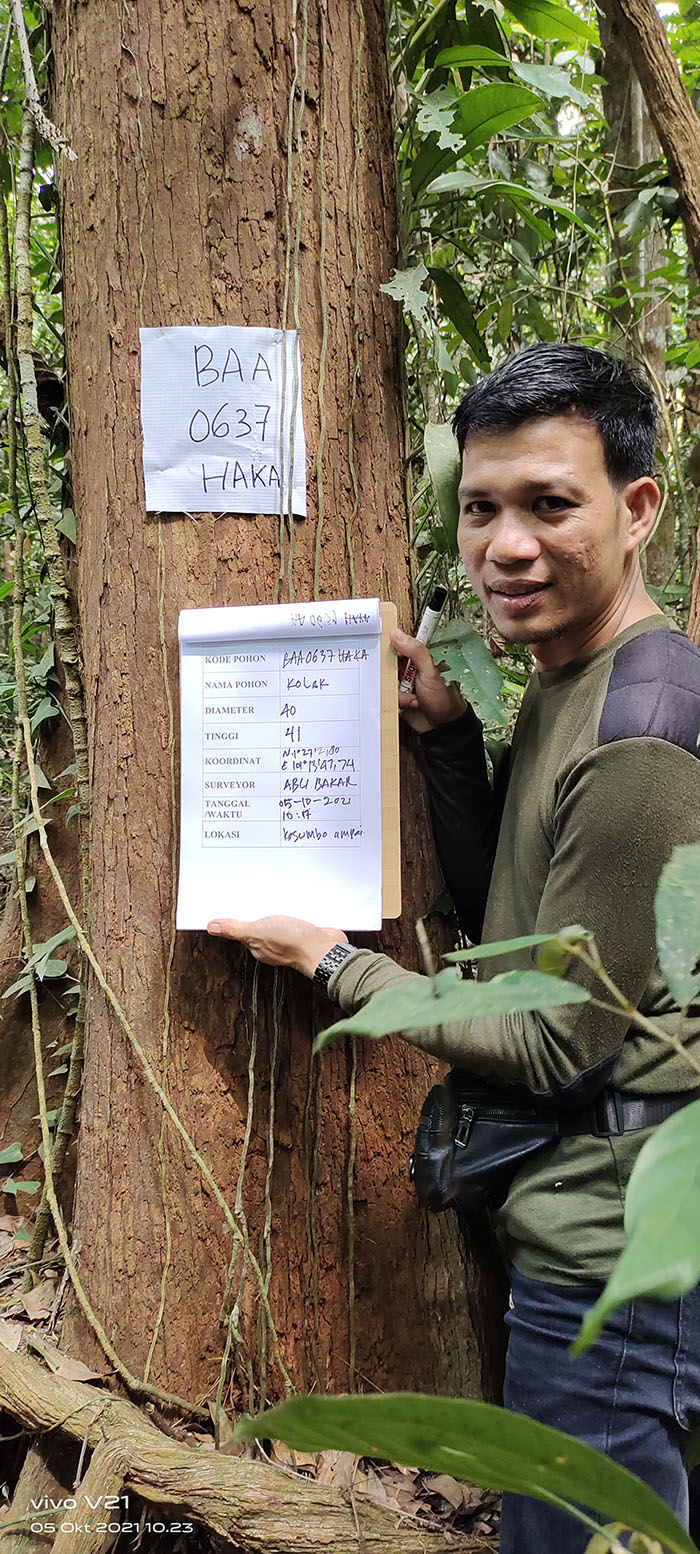 BAA
0637
HAKA
KODE POHON BAA0637 HAKA
NAMA POHON KOLAK
DIAMETER 40
TINGGI 41
KOORDINAT N.1°27'2,80
E 101°13'47,74
SURVEYOR ABU BAKAR
TANGGAL 05-10-2021
/WAKTU 10:17
LOKASI Kosumbo ampai.
vivo V21
05 Okt 2021 10.23